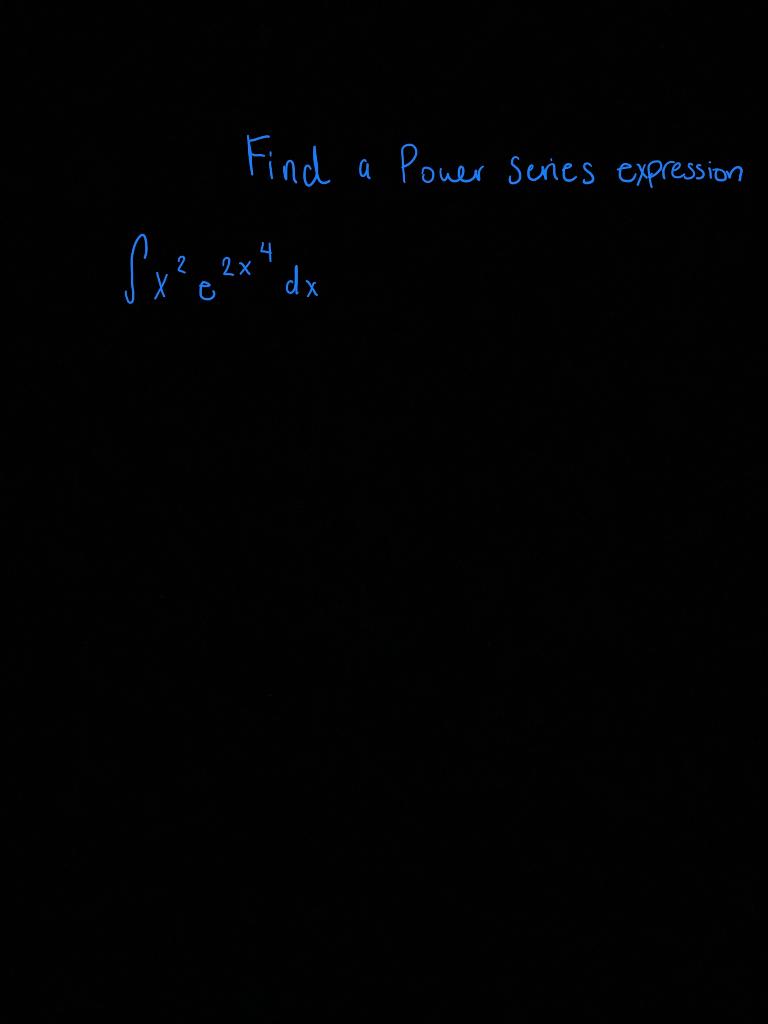 Find a Power series expression
∫x² e^{2x⁴} dx